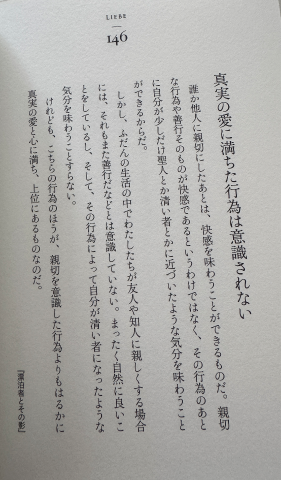 LIEBE
146
真実の愛に満ちた行為は意識されない
誰か他人に親切にしたあとは、快感を味わうことができるものだ。親切
な行為や善行そのものが快感であるというわけではなく、その行為のあと
に自分が少しだけ聖人とか清い者とかに近づいたような気分を味わうこと
ができるからだ。
しかし、ふだんの生活の中でわたしたちが友人や知人に親しくする場合
には、それもまた善行だなどとは意識していない。まったく自然に良いこ
とをしているし、そして、その行為によって自分が清い者になったような
気分を味わうことすらない。
けれども、こちらの行為のほうが、親切を意識した行為よりもはるかに
真実の愛と心に満ち、上位にあるものなのだ。
『漂泊者とその影』